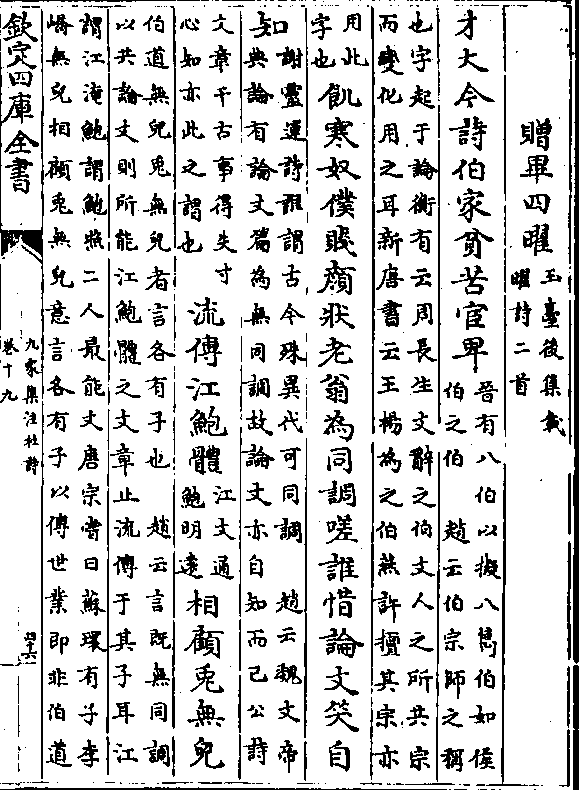 贈畢四曜
玉臺後集載
曜詩二首
才大今詩伯家貧苦宦卑
晉有八伯以擬八雋伯如侯
伯之伯 趙云伯宗師之稱
也字起于論衡有云周長生文辭之伯文人之所共宗
而變化用之耳新唐書云王楊為之伯燕許擅其宗亦
用此
字也
飢寒奴僕賤顔狀老翁為同調嗟誰惜論文笑自
知
謝靈運詩誰謂古今殊異代可同調 趙云魏文帝
典論有論文篇為無同調故論文亦自知而已公詩
文章千古事得失寸
心知亦此之謂也
流傳江鮑體
江文通
鮑明遠
相顧免無兒
伯道無兒免無兒者言各有子也 趙云言既無同調
以共論文則所能江鮑體之文章止流傳于其子耳江
謂江淹鮑謂鮑照二人最能文唐宗嘗曰蘇環有子李
嶠無兒相顧免無兒意言各有子以傳世業即非伯道
欽定四庫全書
九家集注杜詩
卷十九
四十六